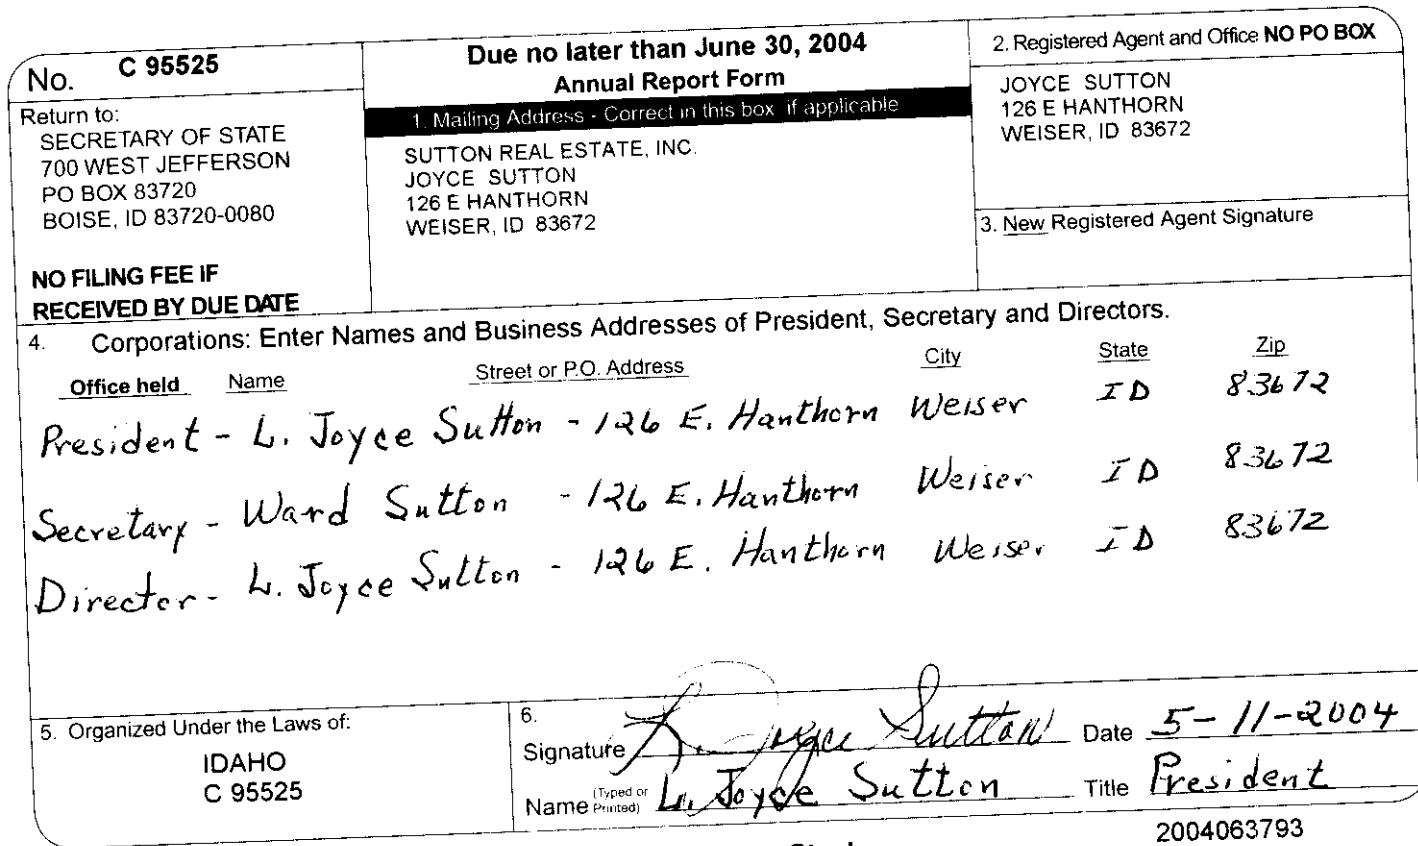 No. C 95525
Return to:
SECRETARY OF STATE
700 WEST JEFFERSON
PO BOX 83720
BOISE, ID 83720-0080
NO FILING FEE IF
RECEIVED BY DUE DATE
Due no later than June 30, 2004
Annual Report Form
1. Mailing Address - Correct in this box if applicable
SUTTON REAL ESTATE, INC.
JOYCE SUTTON
126 E HANTHORN
WEISER, ID 83672
2. Registered Agent and Office NO PO BOX
JOYCE SUTTON
126 E HANTHORN
WEISER, ID 83672
3. New Registered Agent Signature
4. Corporations: Enter Names and Business Addresses of President, Secretary and Directors.
Office held Name Street or P.O. Address City State Zip
President - L. Joyce Sutton - 126 E. Hanthorn Weiser ID 83672
Secretary - Ward Sutton - 126 E. Hanthorn Weiser ID 83672
Director - L. Joyce Sutton - 126 E. Hanthorn Weiser ID 83672
5. Organized Under the Laws of:
IDAHO
C 95525
6.
Signature L. Joyce Sutton Date 5-11-2004
Name (Typed or Printed) L. Joyce Sutton Title President
2004063793